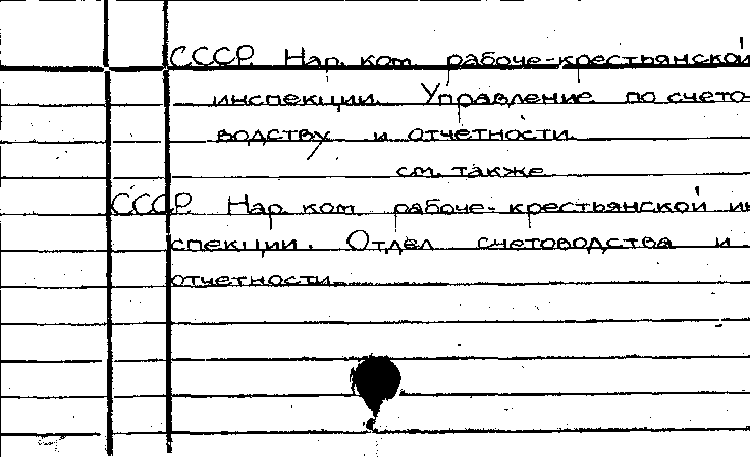 СССР. Нар. ком. рабоче-крестьянской
инспекции. Управление по счето-
водству и отчетности
см. также
СССР. Нар. ком. рабоче-крестьянской ин
спекции. Отдел счетоводства и
отчетности.